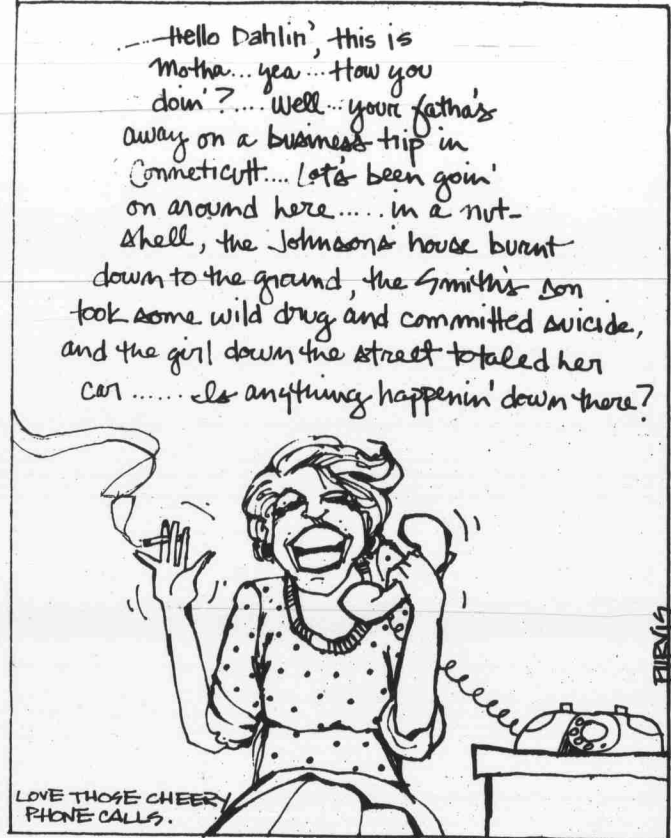 ....Hello Dahlin', this is
Motha...yea...How you
doin'?....Well...your fatha's
away on a business trip in
Conneticutt....Lot's been goin'
on around here.....in a nut-
shell, the Johnsons' house burnt
down to the ground, the Smith's son
took some wild drug and committed suicide,
and the girl down the street totaled her
car......Is anything happenin' down there?
PURVIS
LOVE THOSE CHEERY
PHONE CALLS.